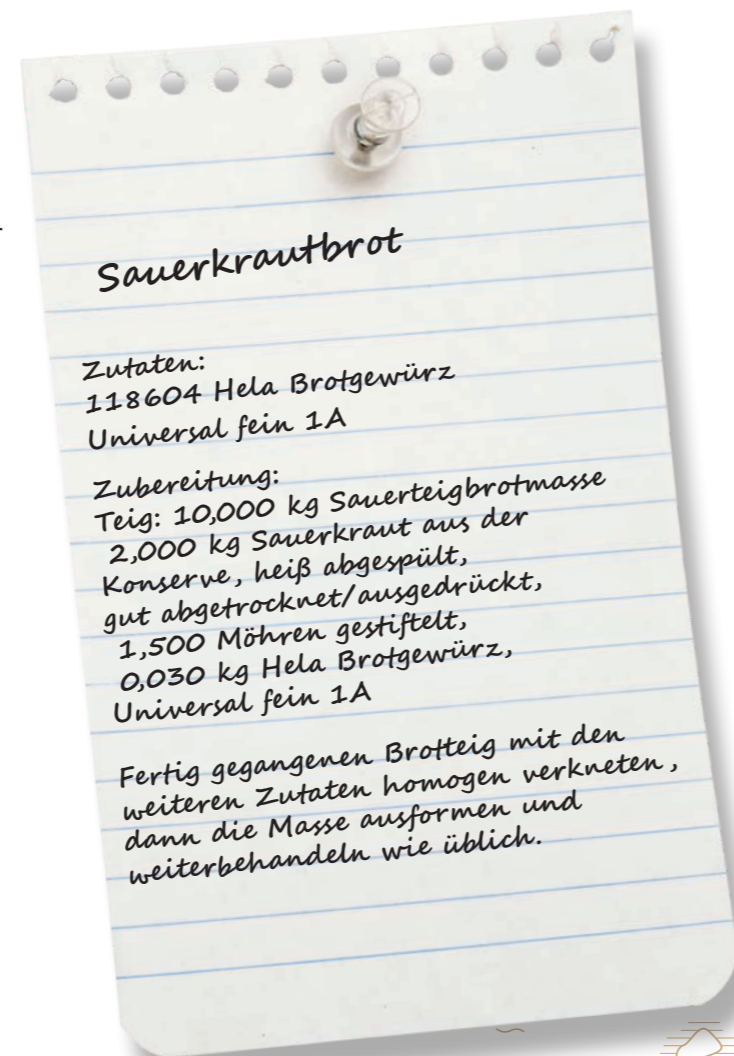 Sauerkrautbrot
Zutaten:
118604 Hela Brotgewürz
Universal fein 1A
Zubereitung:
Teig: 10,000 kg Sauerteigbrotmasse
2,000 kg Sauerkraut aus der
Konserve, heiß abgespült,
gut abgetrocknet/ausgedrückt,
1,500 Möhren gestiftelt,
0,030 kg Hela Brotgewürz,
Universal fein 1A
Fertig gegangenen Brotteig mit den
weiteren Zutaten homogen verkneten,
dann die Masse ausformen und
weiterbehandeln wie üblich.